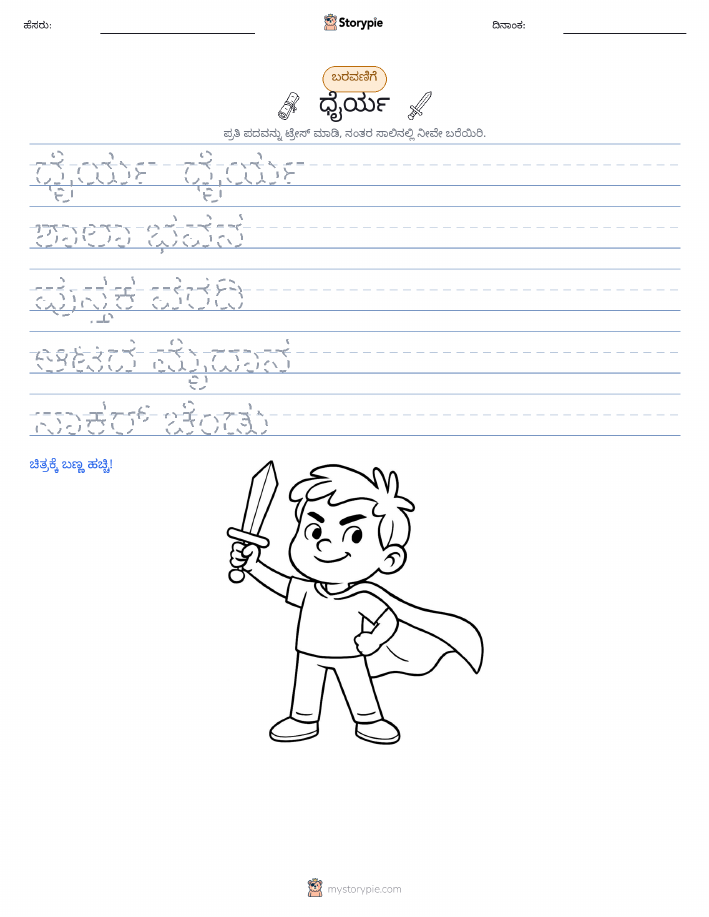 ಹೆಸರು:
Storypie
ದಿನಾಂಕ:
ಬರವಣಿಗೆ
ಧೈರ್ಯ
ಪ್ರತಿ ಪದವನ್ನು ಟ್ರೇಸ್ ಮಾಡಿ, ನಂತರ ಸಾಲಿನಲ್ಲಿ ನೀವೇ ಬರೆಯಿರಿ.
ಧೈರ್ಯ ಧೈರ್ಯ
ಶಾಲಾ ಭವನ
ಪುಸ್ತಕ ವರದಿ
ಆಟದ ಮೈದಾನ
ಸಾಕರ್ ಚೆಂಡು
ಚಿತ್ರಕ್ಕೆ ಬಣ್ಣ ಹಚ್ಚಿ!
mystorypie.com